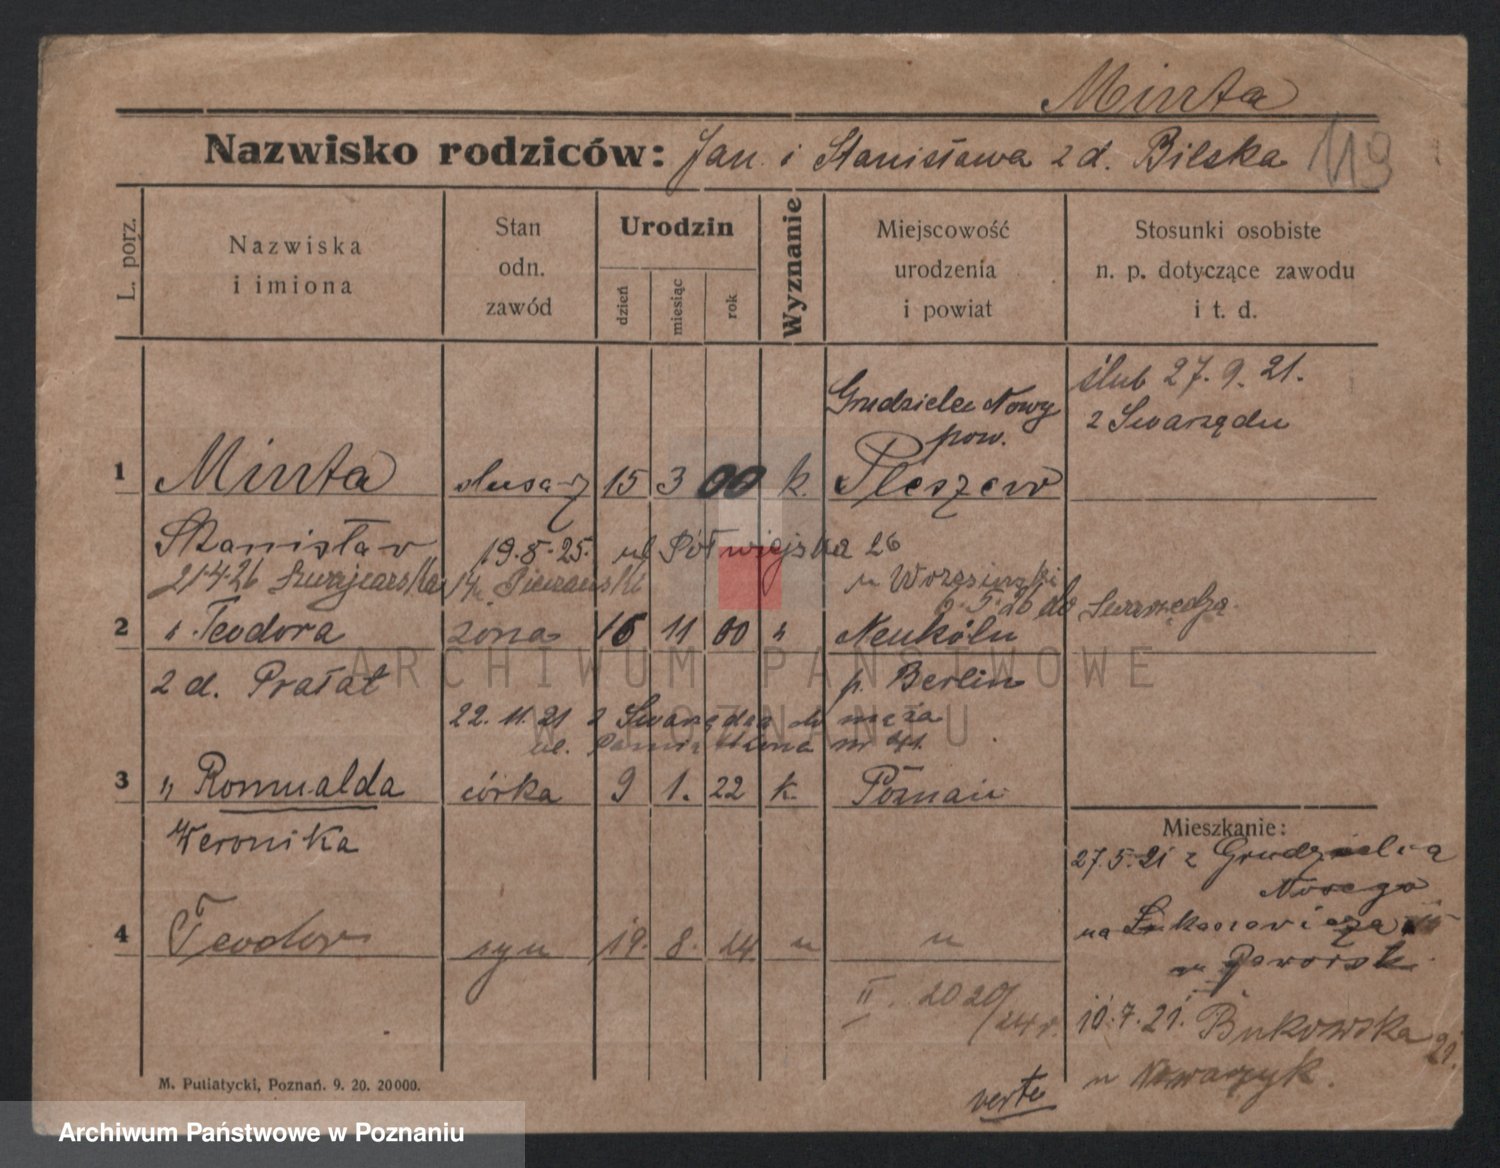 Minta
Nazwisko rodziców: Jan i Stanisława z d. Bilska
119
L. porz.
Nazwiska
i imiona
Stan
odn.
zawód
Urodzin
dzień
miesiąc
rok
Wyznanie
Miejscowość
urodzenia
i powiat
Stosunki osobiste
n. p. dotyczące zawodu
i t. d.
ślub 27. 9. 21.
z Swarzędu
Grudzielec Nowy
pow.
1 Minta ślusarz 15 3 00 k. Pleszew
Stanisław 19.8.25. ul Półwiejska 26
21.4.26 Szwajcarska 14
2.5.26 do Swarzędza
2 " Teodora żona 16 11 00 " Neuköln
z d. Prałat p. Berlin
22. 11. 21 z Swarzędza do męża
ul. nr 41.
3 " Romualda córka 9 1. 22 k. Poznań
Weronika
Mieszkanie:
27.5.21 z Grudzielca
Nowego
na Łukaszewicza
4 Teodor syn 19. 8. 24 " "
II. 2020/24 r.
10.7.21. Bukowska 29.
u
verte
M. Putiatycki, Poznań. 9. 20. 20000.
ARCHIWUM PAŃSTWOWE
W POZNANIU
Archiwum Państwowe w Poznaniu